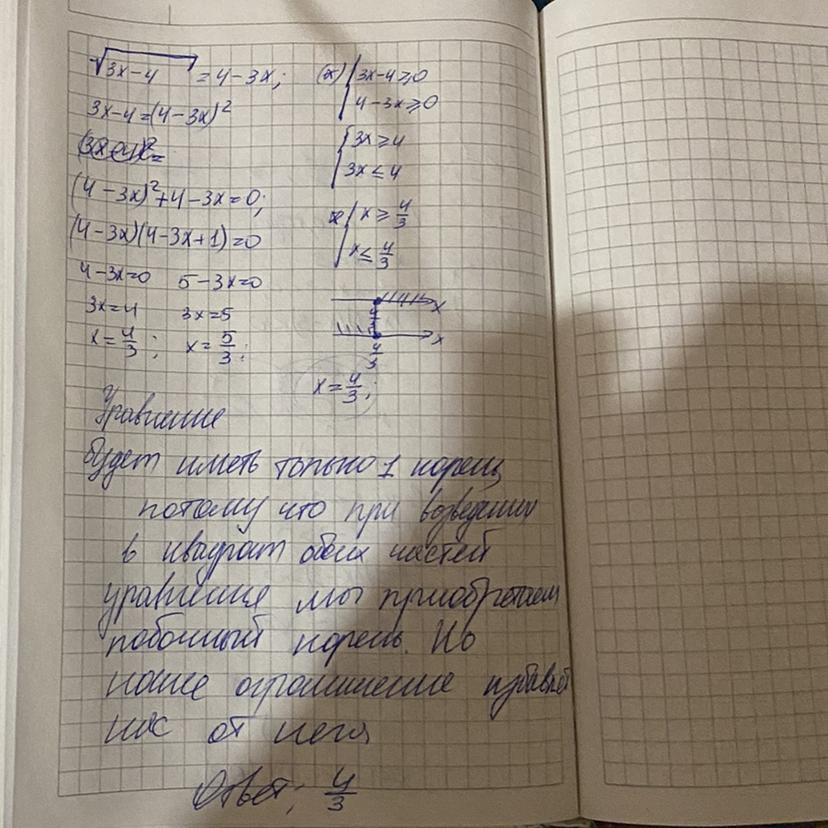 √3x-4 = 4-3x;
3x-4=(4-3x)²
(4-3x)²+4-3x=0;
(4-3x)(4-3x+1)=0
4-3x=0 5-3x=0
3x=4 3x=5
x=4/3; x=5/3;
(x) { 3x-4≥0
4-3x≥0
{ 3x≥4
3x≤4
{ x≥4/3
x≤4/3
x
x
4/3
x=4/3;
Уравнение
будет иметь только 1 корень
потому что при возведении
в квадрат обеих частей
уравнения мы приобретаем
побочный корень. Но
наше ограничение избавляет
нас от него
Ответ: 4/3